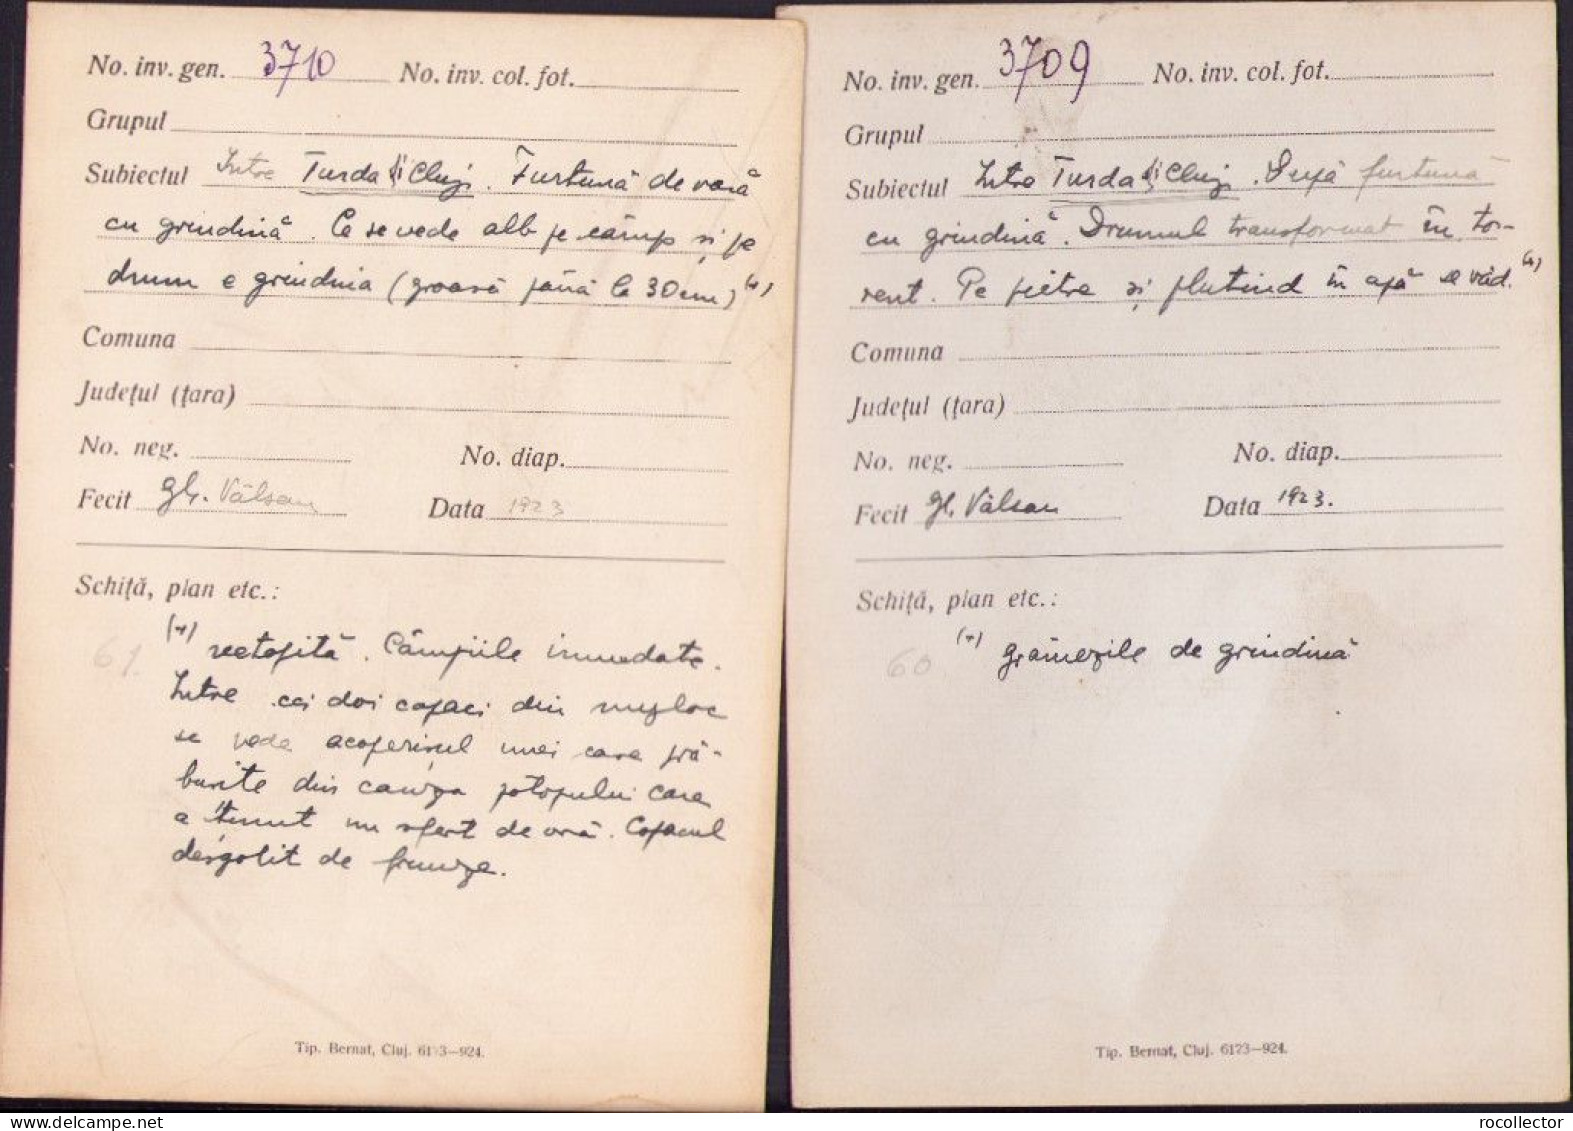 No. inv. gen. 3710 No. inv. col. fot.
Grupul
Subiectul Intre Turda și Cluj. Furtună de vară
cu grindină. Ce se vede alb pe câmp și pe
drum e grindina (groasă până la 30 cm) (+)
Comuna
Județul (țara)
No. neg. No. diap.
Fecit Gh. Vâlsan Data 1923
Schiță, plan etc.:
61. (+) netopită. Câmpiile inundate.
Intre cei doi copaci din mijloc
se vede acoperișul unei case pră-
bușite din cauza potopului care
a ținut un sfert de oră. Copacul
desgolit de frunze.
Tip. Bernat, Cluj. 6123—924.
No. inv. gen. 3709 No. inv. col. fot.
Grupul
Subiectul Intre Turda și Cluj. După furtună
cu grindină. Drumul transformat în tor-
rent. Pe pietre și plutind în apă se văd (+)
Comuna
Județul (țara)
No. neg. No. diap.
Fecit Gh. Vâlsan Data 1923.
Schiță, plan etc.:
60 (+) grămezile de grindină
Tip. Bernat, Cluj. 6123—924.
www.delcampe.net
rocollector